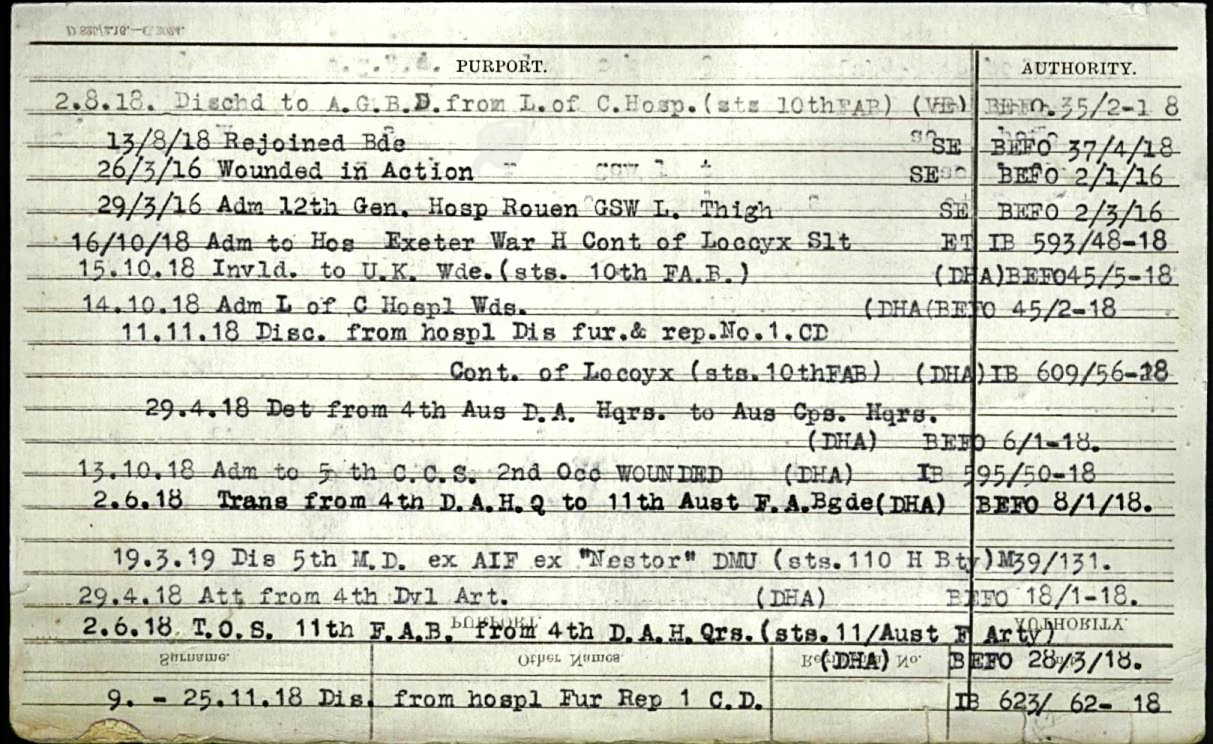 PURPORT. AUTHORITY.
2.8.18. Dischd to A.G.B.D.from L.of C.Hosp.(sts 10thFAB) (VE) BEFO.35/2-1 8
13/8/18 Rejoined Bde SE BEFO 37/4/18
26/3/16 Wounded in Action SE BEFO 2/1/16
29/3/16 Adm 12th Gen. Hosp Rouen GSW L. Thigh SE BEFO 2/3/16
16/10/18 Adm to Hos Exeter War H Cont of Loccyx Slt ET IB 593/48-18
15.10.18 Invld. to U.K. Wde.(sts. 10th FA.B.) (DHA)BEFO45/5-18
14.10.18 Adm L of C Hospl Wds. (DHA(BEFO 45/2-18
11.11.18 Disc. from hospl Dis fur.& rep.No.1.CD
Cont. of Locoyx (sts.10thFAB) (DHA)IB 609/56-18
29.4.18 Det from 4th Aus D.A. Hqrs. to Aus Cps. Hqrs.
(DHA) BEFO 6/1-18.
13.10.18 Adm to 5 th C.C.S. 2nd Occ WOUNDED (DHA) IB 595/50-18
2.6.18 Trans from 4th D.A.H.Q to 11th Aust F.A.Bgde(DHA) BEFO 8/1/18.
19.3.19 Dis 5th M.D. ex AIF ex "Nestor" DMU (sts.110 H Bty)M39/131.
29.4.18 Att from 4th Dvl Art. (DHA) BEFO 18/1-18.
2.6.18 T.O.S. 11th F.A.B. from 4th D.A.H.Qrs.(sts.11/Aust F Arty)
PURPORT. AUTHORITY.
(DHA) BEFO 28/3/18.
Surname. Other Names No.
9. - 25.11.18 Dis. from hospl Fur Rep 1 C.D. IB 623/ 62- 18